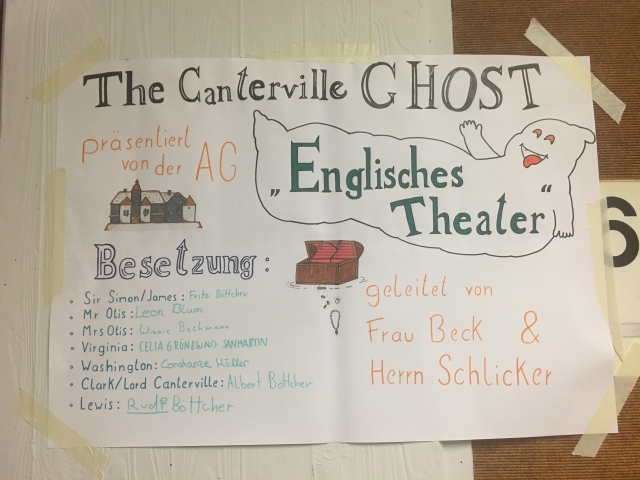 The Canterville GHOST
präsentiert
von der AG
„Englisches
Theater“
Besetzung:
Sir Simon/James: Fritz Böttcher
Mr Otis: Leon Blum
Mrs Otis: Winnie Bachmann
Virginia: CELIA GRÜNEWALD SANMARTIN
Washington: Constanze Müller
Clark/Lord Canterville: Albert Böttcher
Lewis: Rudi Böttcher
geleitet von
Frau Beck &
Herrn Schlicker
6